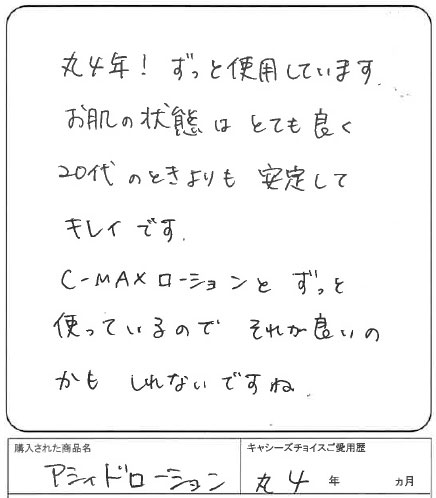 丸4年! ずっと使用しています.
お肌の状態は とても良く
20代のときよりも 安定して
キレイです.
C-MAXローションと ずっと
使っているので それが良いの
かも しれないですね
購入された商品名
キャシーズチョイスご愛用歴
アシィドローション
丸4 年 ヵ月